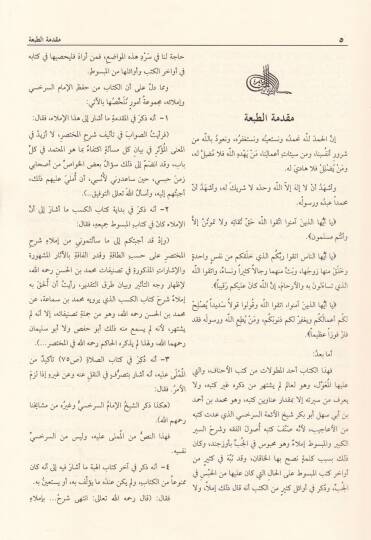 ٥
مقدمة الطبعة
مقدمة الطبعة
إنَّ الحمدَ لله نحمدُه ونستعينُه ونستغفرُه، ونعوذُ بالله من
شرور أنفسِنا، ومن سيئاتِ أعمالِنا، مَن يَهْدِهِ اللَّه فلا مُضِلَّ له،
ومَن يُضْلِلْ فلا هاديَ له.
وأشهَدُ أنْ لا إلهَ إلَّا اللَّه وحدَه لا شريكَ له، وأشهَدُ أنَّ
محمداً عبدُه ورسولُه.
﴿يا أيُّها الذين آمنوا اتَّقوا اللَّه حَقَّ تُقاتِه ولا تموتُنَّ إلَّا
وأنتُم مسلمون﴾.
﴿يا أيُّها الناسُ اتَّقوا ربَّكُم الذي خلَقكُم من نفسٍ واحدةٍ
وخلَقَ منها زوجَها، وبَثَّ منهما رجالاً كثيراً ونساءً، واتقوا اللَّه
الذي تَساءَلونَ به والأرحامَ، إنَّ اللَّه كانَ عليكم رَقيباً﴾.
﴿يا أيُّها الذين آمنوا، اتقُوا اللَّه وقولوا قَولاً سَديداً يُصلِحْ
لكُم أعمالكُم ويغفِرْ لكم ذنوبَكُم، ومَنْ يُطِعِ اللَّه ورسولَه فقد
فازَ فوزاً عظيماً﴾.
أما بعدُ:
فهذا الكتاب أحد المطولات من كتب الأحناف، والتي
عليها المُعَوَّل، وهو لعالمٍ لم يشتهر من ذكره غير كتبه، ولا
يعرف من سيرته إلا بمقدار عناوين كتبه، وهو محمد بن أحمد
بن أبي سهل أبو بكر شيخ الأئمة السرخسي الذي عدت كتبه
من الأعاجيب، لأنه صنَّف كتبه أصول الفقه وشرح السير
الكبير والمبسوط إملاءً وهو محبوس في الجُبِّ بأوزجند، وكان
ذلك بسبب كلمة نصح بها الخاقان، وقد نَبَّه في كثير من
أواخر كتب المبسوط على الحال التي كان عليها من الحبْس في
الجب، وذكر في أوائل كثيرٍ من الكتب أنه قال ذلك إملاءً، ولا
حاجة لنا في سَرْدِ هذه المواضع، فمن أرادَ فليحصيها في كتابه
في أواخر الكتب وأوائلها من المبسوط.
ومما دلَّ على أن الكتابَ من حفظ الإمام السرخسي
وإملائه، مجموعةُ أمورٍ نُلَخِّصُها بالآتي:
١- أنه ذكر في المقدمة ما أشار إلى هذا الإملاء، فقال:
(فرأيتُ الصوابَ في تأليف شرح المختصر، لا أزيدُ في
المعنى المؤثّر في بيانِ كل مسألةٍ اكتفاءً بما هو المعتمد في كلِّ
باب، وقد انضمَّ إلى ذلك سؤالُ بعض الخواصِّ من أصحابي
زمنَ حبسي، حين ساعدوني لأُنسي، أنْ أُمليَ عليهم ذلك،
أجبتُهم إليه، وأسألُ اللَّه تعالى التوفيق...)
٢- أنه ذكرَ في بداية كتاب الكسب ما أشارَ إلى أنَّ
الإملاءَ كانَ في كتاب المبسوط جميعِهِ، فقال:
(وإذْ قد أجبتُكم إلى ما سألتموني من إملاءِ شرحِ
المختصر على حسب الطاقةِ وقدر الفاقةِ بالآثار المشهورة
والإشارات المذكورة في تصنيفات محمد بن الحسن رحمه الله،
لإظهار وجه التأثير وبيانِ طرق التقدير، رأيتُ أن أُلحِقَ به
إملاءَ شرح كتاب الكسب الذي يرويه محمد بن سماعة، عن
محمد بن الحسن رحمه الله، وهو من جملةِ تصنيفاته، إلا أنه لم
يشتهر، لأنه لم يسمع منه ذلك أبو حفص ولا أبو سليمان
رحمهما الله، ولهذا لم يذكره الحاكم رحمه الله في المختصر...).
٣- أنه ذكرَ في كتاب الصلاة (ص٧٥) تأكيدٌ من
المُملَى عليه، أنه أشار بتصرُّفٍ في النقل عنه وعن غيره إذا لزمَ
الأمرُ. فقال:
(هكذا ذكر الشيخُ الإمامُ السرخسي وغيرُه من مشايخنا
رحمهم الله).
فهذا النصُّ من المُملَى عليه، وليس من السرخسي
نفسه.
٤- أنه ذكر في آخر كتاب الهبة ما أشارَ فيه إلى أنه كان
ممنوعاً من الكتاب، ولم يكن عندَه ما يؤلّف به، أو يستعينُ به.
فقال: (قال رحمه الله تعالى: انتهى شرحُ... بإملاءِ